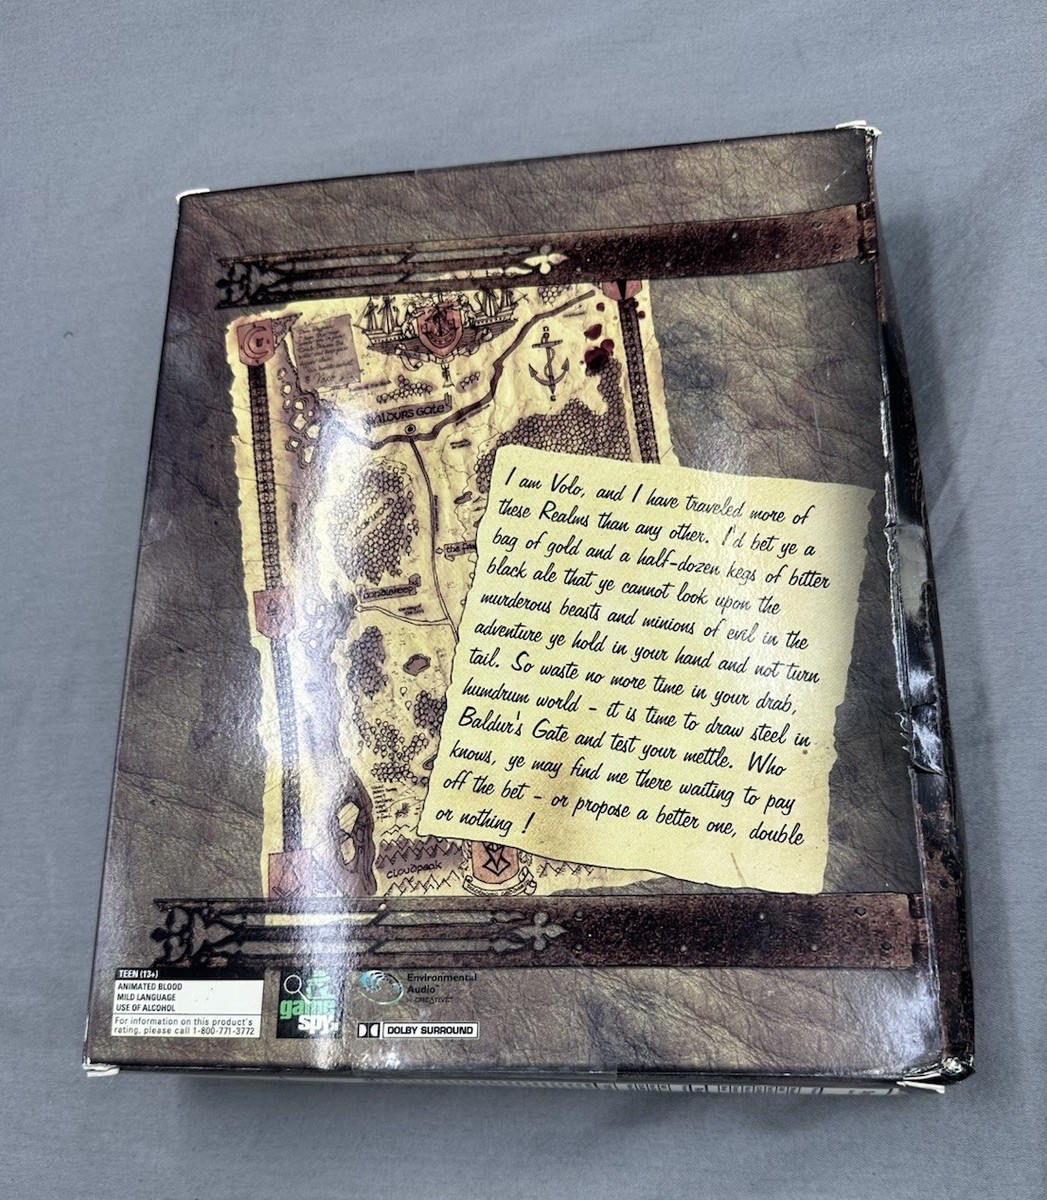 BALDURS GATE
I am Volo, and I have traveled more of
these Realms than any other. I'd bet ye a
bag of gold and a half-dozen kegs of bitter
black ale that ye cannot look upon the
murderous beasts and minions of evil in the
adventure ye hold in your hand and not turn
tail. So waste no more time in your drab,
humdrum world - it is time to draw steel in
Baldur's Gate and test your mettle. Who
knows, ye may find me there waiting to pay
off the bet - or propose a better one, double
or nothing !
the
CANDLEKEEP
CLOUDPEAK
TEEN (13+)
ANIMATED BLOOD
MILD LANGUAGE
USE OF ALCOHOL
For information on this product's
rating, please call 1-800-771-3772
game
spy
Environmental
Audio™
by CREATIVE
DOLBY SURROUND